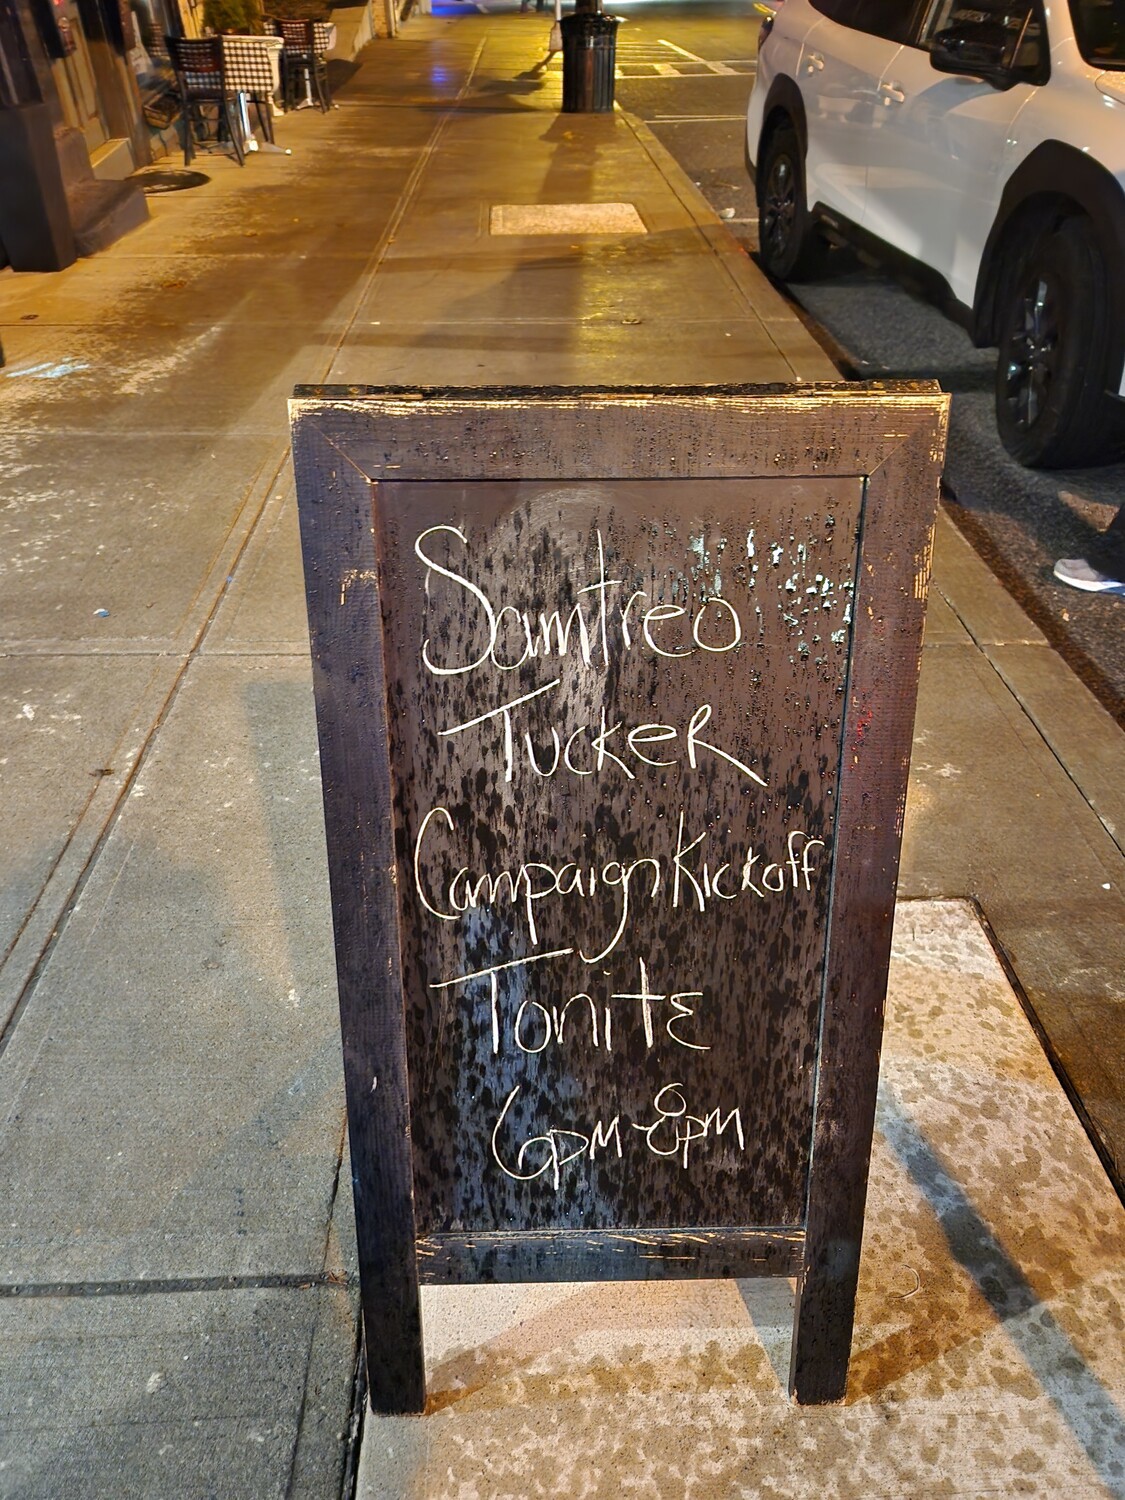 Samtreo
Tucker
Campaign Kickoff
Tonite
6pm-8pm